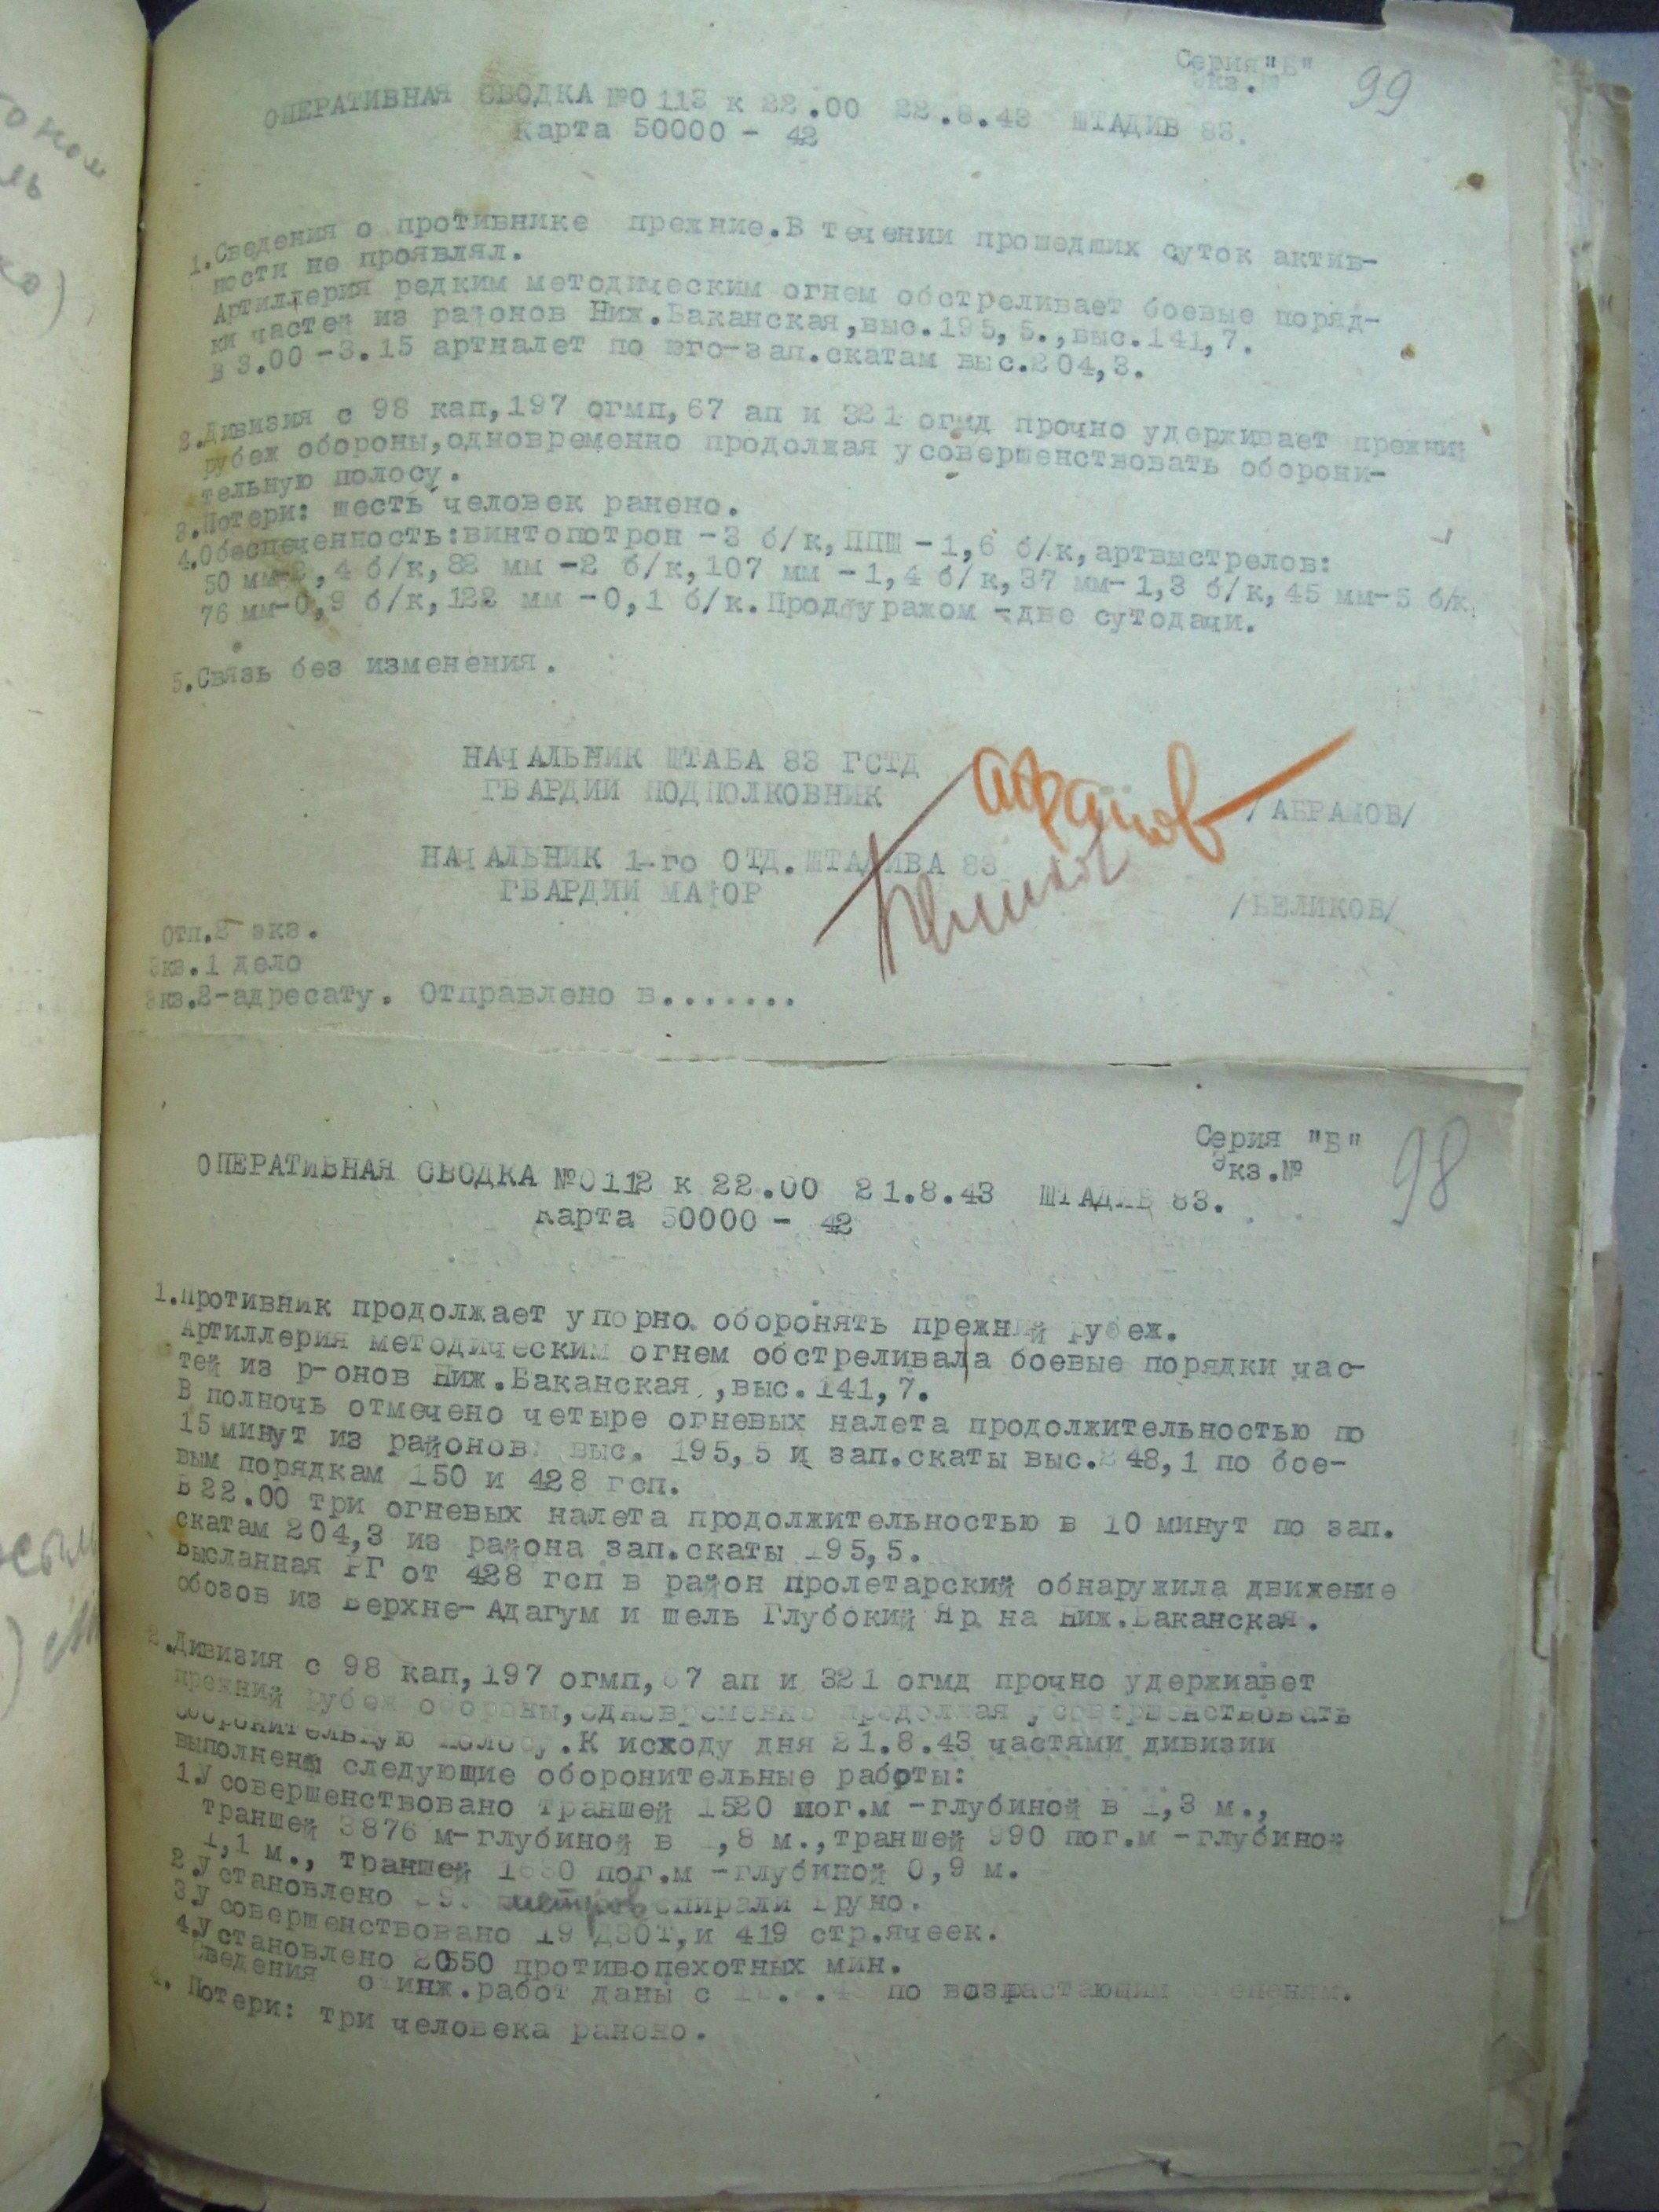 Серия "Б"
Экз.№
99
ОПЕРАТИВНАЯ СВОДКА №0113 к 22.00 22.8.43 ШТАДИВ 83.
Карта 50000 - 42
1.Сведения о противнике прежние.В течении прошедших суток актив-
ности не проявлял.
Артиллерия редким методическим огнем обстреливает боевые поряд-
ки частей из районов Ниж.Баканская,выс.195,5.,выс.141,7.
В 3.00-3.15 артналет по юго-зап.скатам выс.204,3.
2.Дивизия с 98 кап,197 огмп,67 ап и 321 огмд прочно удерживает прежний
рубеж обороны,одновременно продолжая усовершенствовать оборони-
тельную полосу.
3.Потери: шесть человек ранено.
4.Обеспеченность:винтопотрон -3 б/к,ППШ -1,6 б/к,артвыстрелов:
50 мм-2,4 б/к,82 мм -2 б/к,107 мм -1,4 б/к,37 мм-1,3 б/к,45 мм-5 б/к,
76 мм-0,9 б/к,122 мм -0,1 б/к.Продфуражом -две сутодачи.
5.Связь без изменения.
НАЧАЛЬНИК ШТАБА 83 ГСТД
ГВАРДИИ ПОДПОЛКОВНИК /АБРАМОВ/
НАЧАЛЬНИК 1-го ОТД.ШТАДИВА 83
ГВАРДИИ МАЙОР /БЕЛИКОВ/
Отп.2 экз.
Экз.1 дело
Экз.2-адресату. Отправлено в.......
Серия "Б"
Экз.№
98
ОПЕРАТИВНАЯ СВОДКА №0112 к 22.00 21.8.43 ШТАДИВ 83.
Карта 50000 - 42
1.Противник продолжает упорно оборонять прежний рубеж.
Артиллерия методическим огнем обстреливала боевые порядки час-
тей из р-онов Ниж.Баканская,выс.141,7.
В полночь отмечено четыре огневых налета продолжительностью по
15 минут из районов выс. 195,5 и зап.скаты выс.248,1 по бое-
вым порядкам 150 и 428 гсп.
В 22.00 три огневых налета продолжительностью в 10 минут по зап.
скатам 204,3 из района зап.скаты 195,5.
Высланная РГ от 428 гсп в район пролетарский обнаружила движение
обозов из Верхне-Адагум и шель Глубокий Яр на Ниж.Баканская.
2.Дивизия с 98 кап,197 огмп,67 ап и 321 огмд прочно удержиавет
прежний рубеж обороны,одновременно продолжая усовершенствовать
оборонительную полосу.К исходу дня 21.8.43 частями дивизии
выполнены следующие оборонительные работы:
1.Усовершенствовано траншей 1520 пог.м -глубиной в 1,3 м.,
траншей 3876 м-глубиной в 1,8 м.,траншей 990 пог.м -глубиной
1,1 м., траншей пог.м -глубиной 0,9 м.
2.Установлено метров спирали Бруно.
3.Усовершенствовано 19 ДЗОТ,и 419 стр.ячеек.
4.Установлено 20550 противопехотных мин.
Сведения о инж.работ даны с по возрастающим степеням.
4. Потери: три человека ранено.